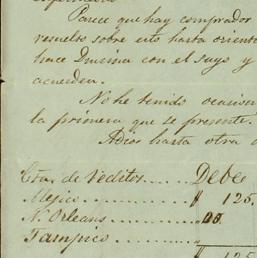 Parece que hay comprador
resuelto sobre esto hasta orient
hace Dmcina con el suyo y
acuerden.
No he tenido ocasion
la primera que se presente.
Adios hasta otra
Cta. de Veditos...... Debe
Mejico........ " 125.
N. Orleans
Tampico
125